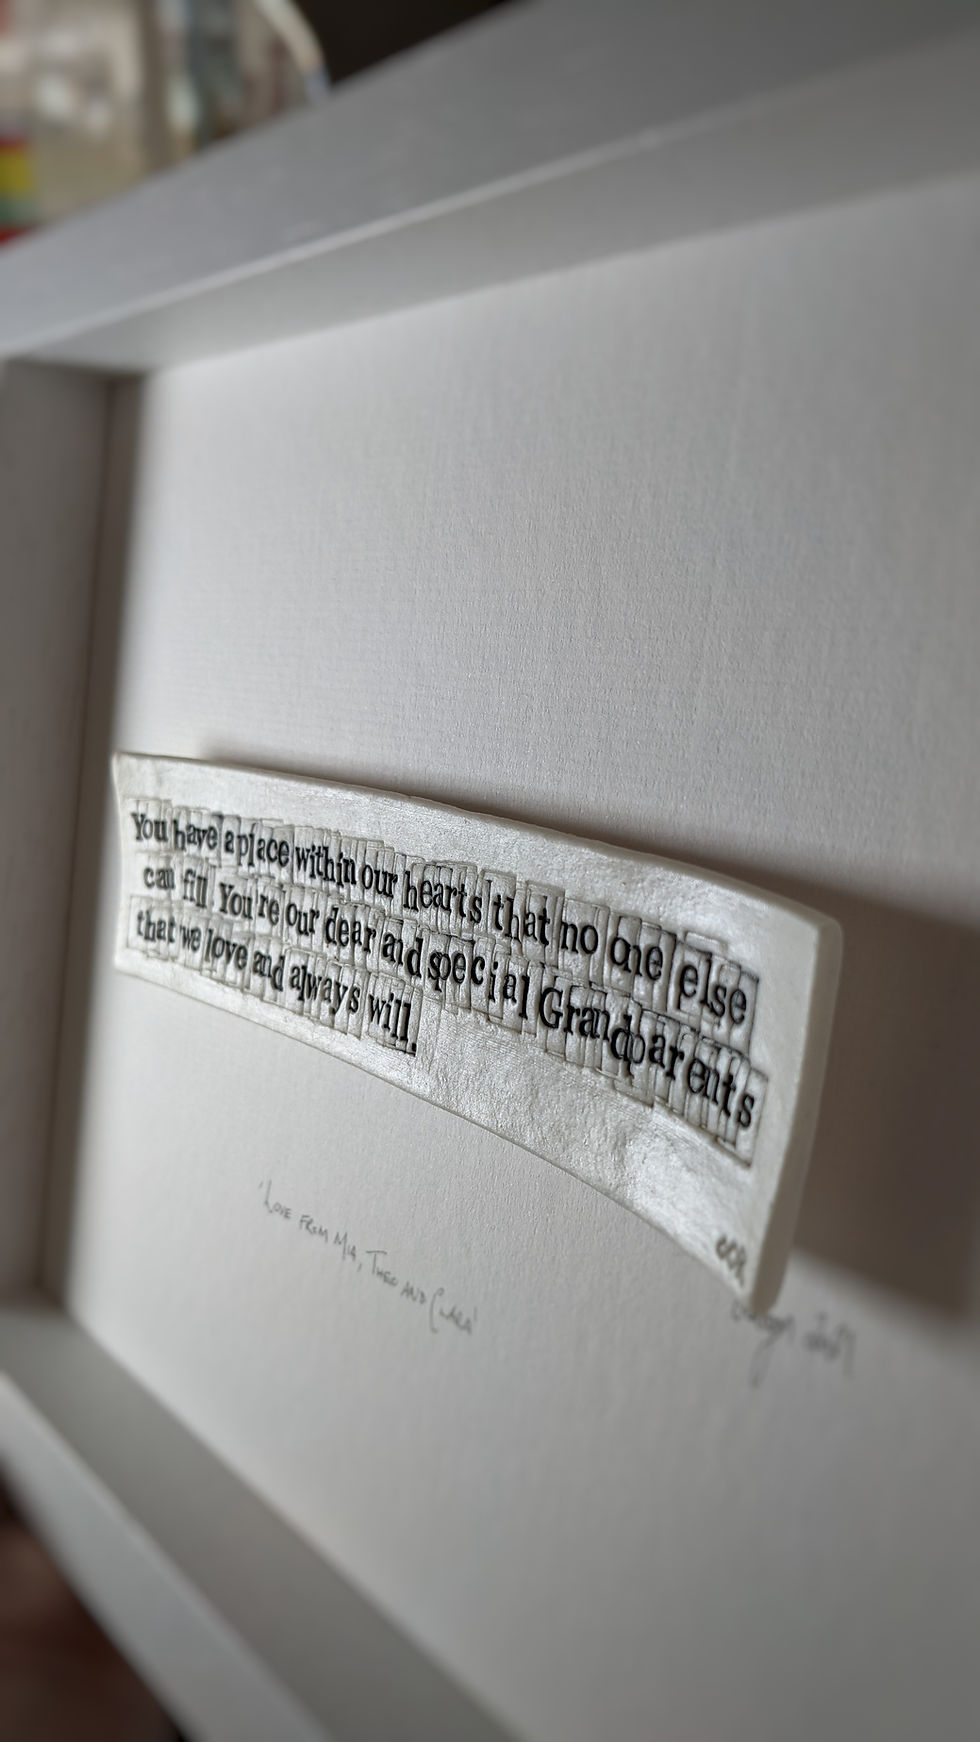 You have a place within our hearts that no one else
can fill. You're our dear and special Grandparents
that we love and always will.
'LOVE FROM MIA, THEO AND CLARA'